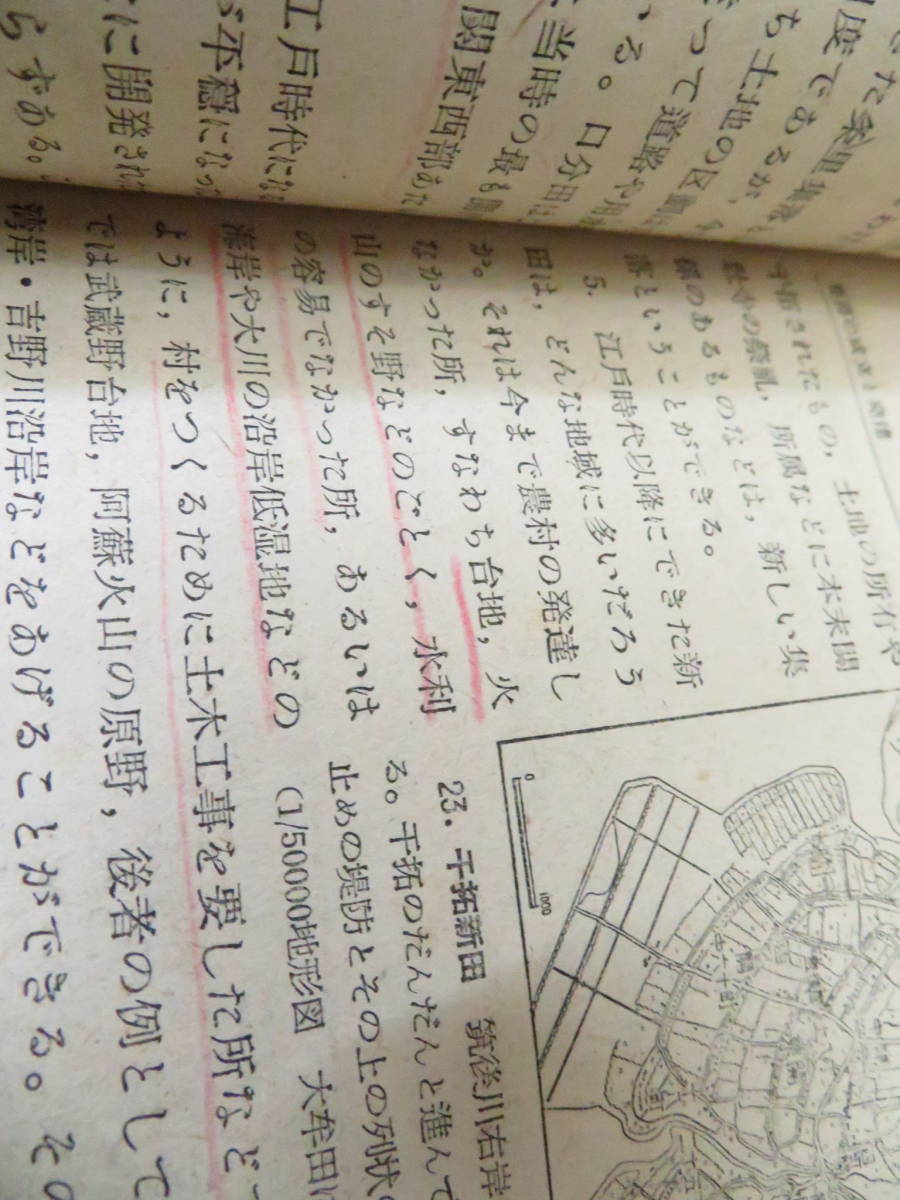 た条里集落
度であるが，
ち土地の区画は
って道路や用
いる。口分田は
当時の最も
関東西部あた
江戸時代にな
が平穏になっ
に開発され
らずある。
干拓されたもの，土地の所有や
社寺の祭祀，所属などに本末関
係のあるものなどは，新しい集
落ということができる。
5. 江戸時代以降にできた新
田は，どんな地域に多いだろう
か。それは今まで農村の発達し
なかった所，すなわち台地，火
山のすそ野などのごとく，水利
の容易でなかった所，あるいは
海岸や大川の沿岸低湿地などの
ように，村をつくるために土木工事を要した所など
では武蔵野台地，阿蘇火山の原野，後者の例として
湾岸・吉野川沿岸などをあげることができる。その
0 1000
23. 干拓新田 筑後川右岸
る。干拓のだんだんと進んで
止めの堤防とその上の列状
(1/50000地形図 大牟田